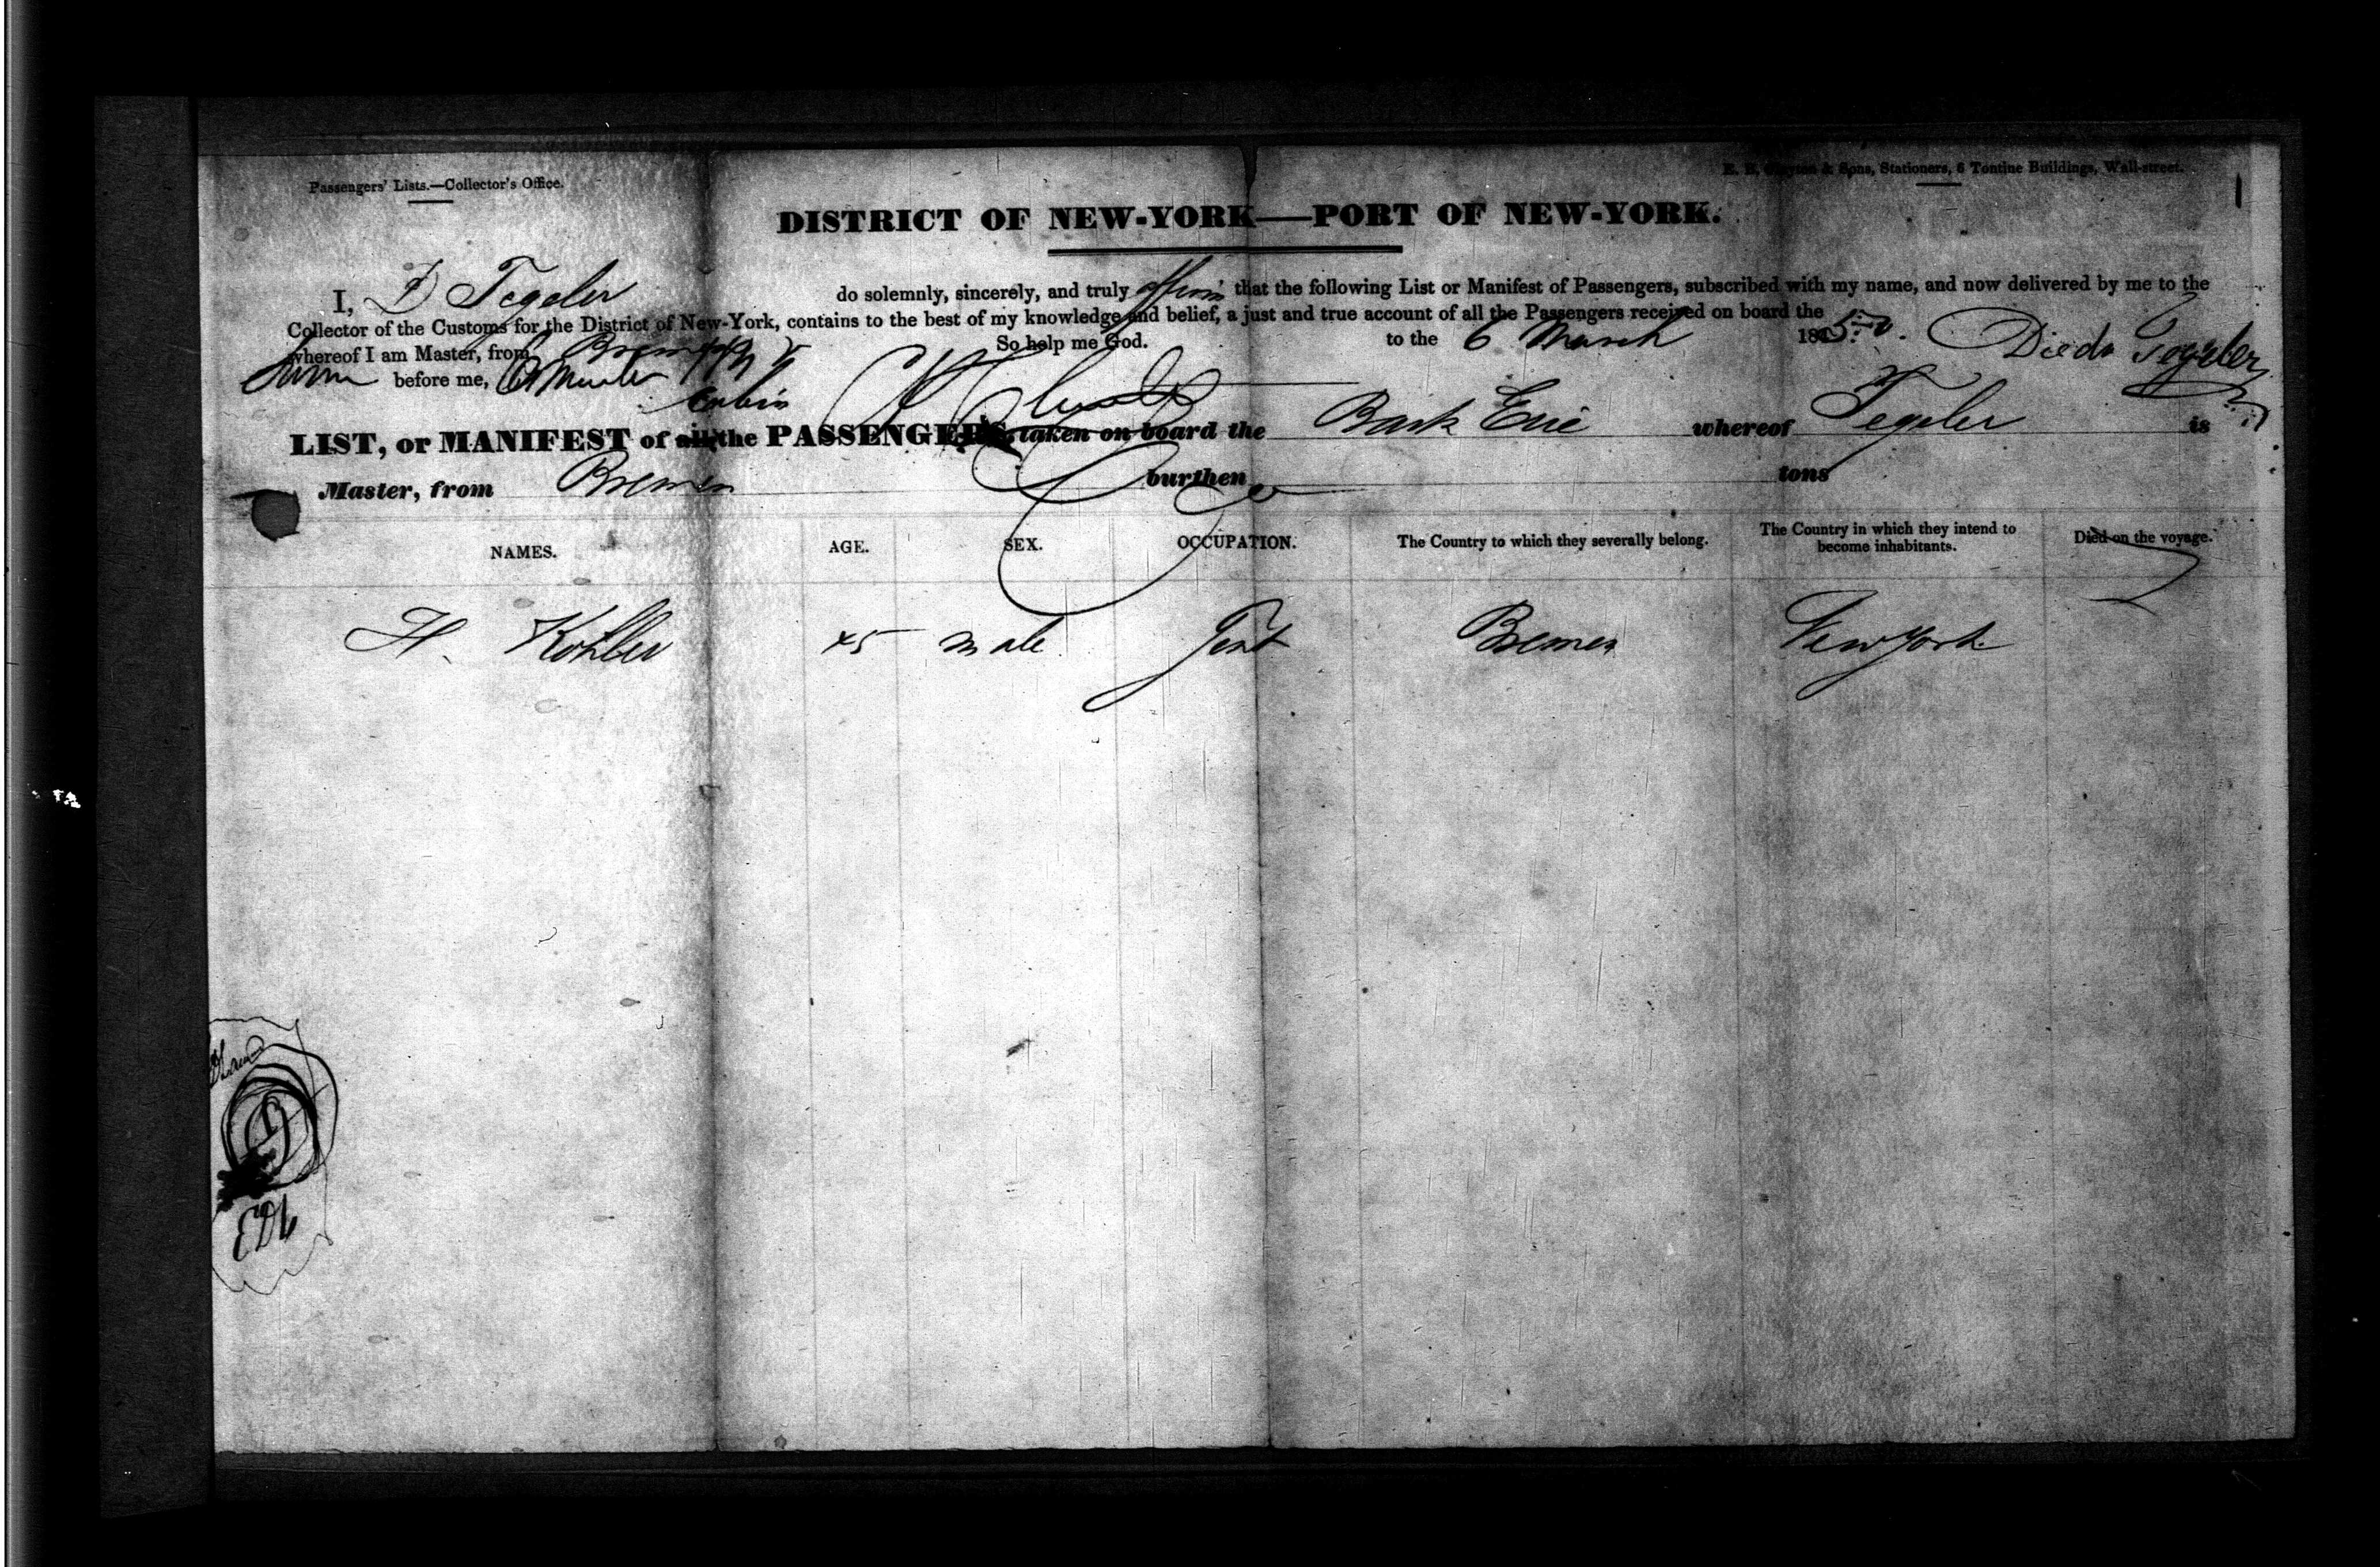 Passengers' Lists.—Collector's Office.
& Sons, Stationers, 6 Tontine Buildings, Wall-street.
DISTRICT OF NEW-YORK—PORT OF NEW-YORK.
I, D Tegeler do solemnly, sincerely, and truly affirm that the following List or Manifest of Passengers, subscribed with my name, and now delivered by me to the
Collector of the Customs for the District of New-York, contains to the best of my knowledge and belief, a just and true account of all the Passengers received on board the
whereof I am Master, from Bremen So help me God. to the 6 March 18
before me, Tegeler
Cabin
LIST, or MANIFEST of all the PASSENGERS taken on board the Bark Erie whereof Tegeler is
Master, from Bremen burthen tons
NAMES. AGE. SEX. OCCUPATION. The Country to which they severally belong. The Country in which they intend to become inhabitants. Died on the voyage.
H. Kohler 45 male Gent Bremen New York